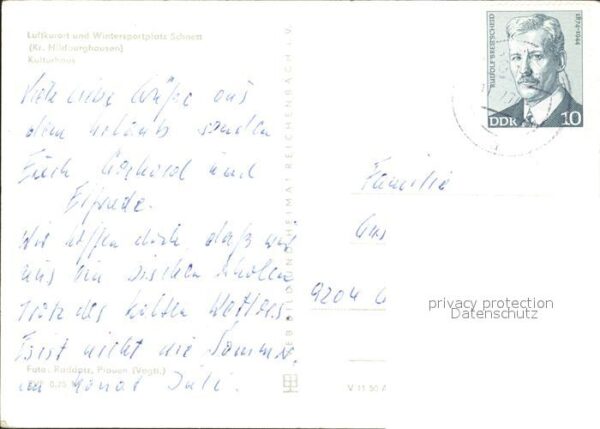 Luftkurort und Wintersportplatz Schnett
(Kr. Hildburghausen)
Kulturhaus
Viele liebe Grüße aus
dem Urlaub senden
Euch Gerhard und
Elfriede.
Wir hoffen doch, daß wir
uns ein bischen erholen
trotz des kalten Wetters.
Es ist nicht wie Sommer
im Monat Juli.
Foto: Raddatz, Plauen (Vogtl.)
EVP 0,20
BILD UND HEIMAT REICHENBACH i. V.
V 11 50 A
RUDOLF BREITSCHEID
1874-1944
DDR 10
Familie
9204
privacy protection
Datenschutz